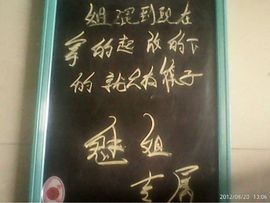 组遇到现在
拿的起放的下
的就只有筷子
魅组
专属
2012/09/20 13:06